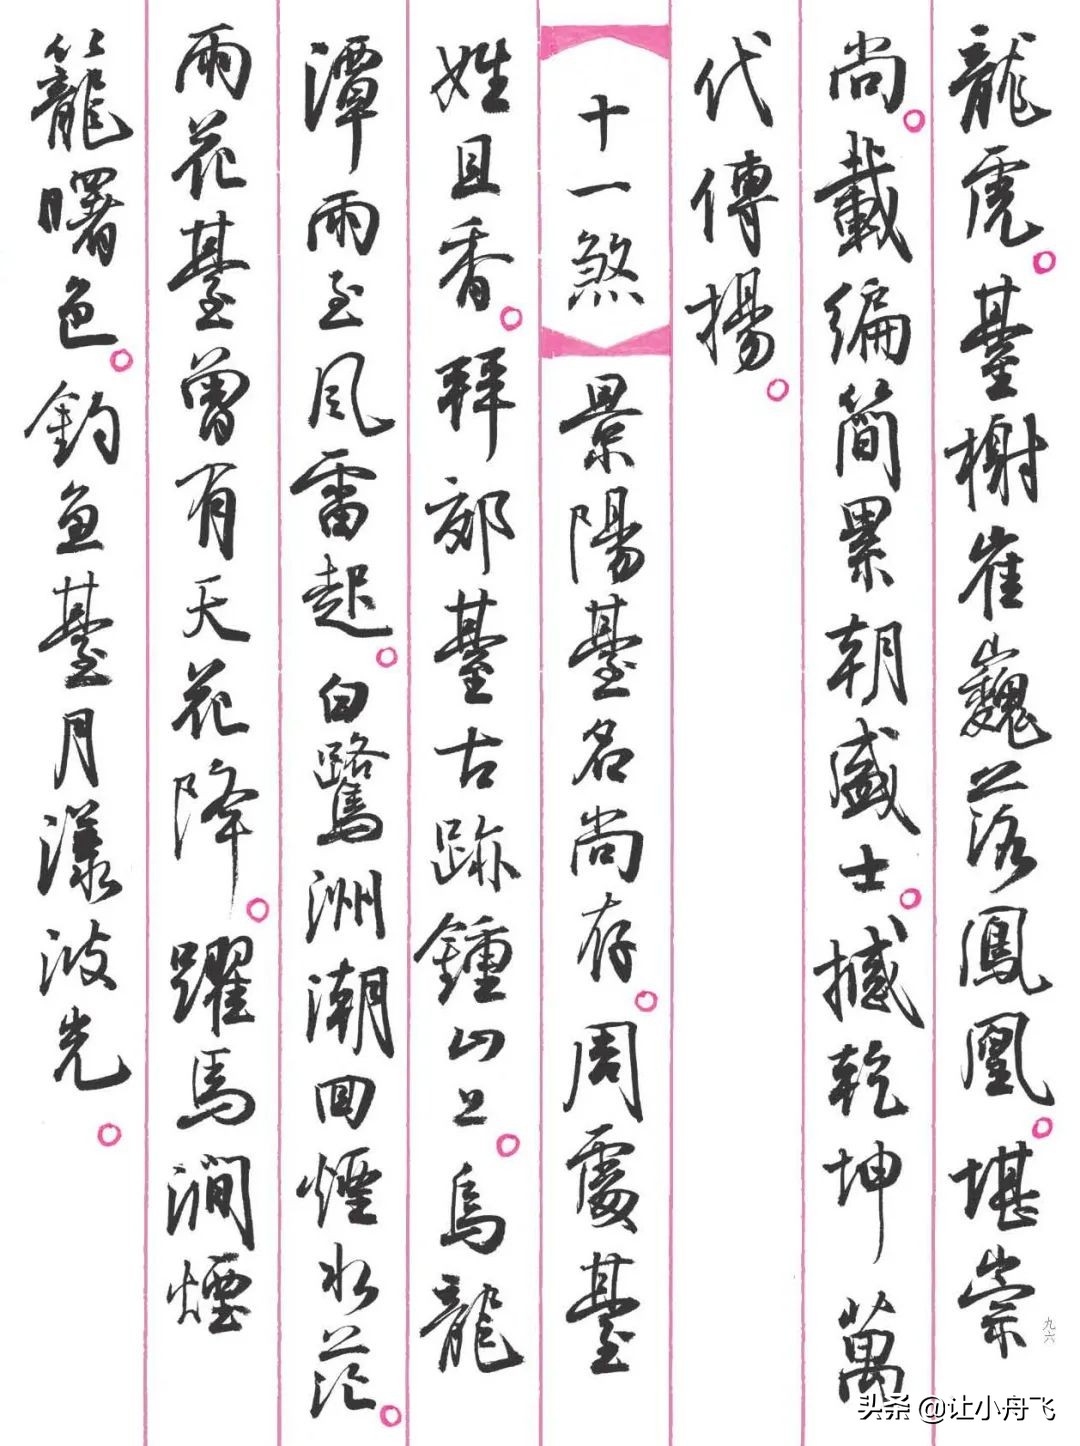 龍虎。臺榭崔巍落鳳凰。堪崇
尚。載編簡累朝盛士。撼乾坤萬
代傳揚。
十一煞
景陽臺名尚存。周處臺
姓且香。拜郊臺古跡鍾山上。烏龍
潭雨至風雷起。白鷺洲潮回煙水茫。
雨花臺曾有天花降。躍馬澗煙
籠曙色。釣魚臺月漾波光。
九六
头条 @让小舟飞